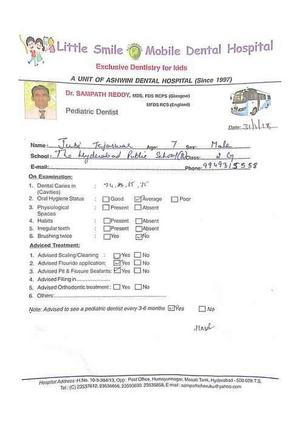 Little Smile Mobile Dental Hospital
Exclusive Dentistry for kids
A UNIT OF ASHWIN DENTAL HOSPITAL (Since 1997)
Dr. SAMPATH REDDY, MDS, FDS RCPS (Glasgow)
MFDS RCS (England)
Pediatric Dentist
Date:
Name: Age: 7 Sex: Male
School: The Hyderabad Public School Class: 2 G
E-mail: Phone:
On Examination:
1. Dental Caries in : 74, 75
(Cavities)
2. Oral Hygiene Status : Good Average Poor
3. Physiological : Present Absent
Spaces
4. Habits : Present Absent
5. Irregular teeth : Present Absent
6. Brushing twice : Yes No
Adviced Treatment:
1. Advised Scaling/Cleaning : Yes No
2. Advised Flouride application: Yes No
3. Advised Pit & Fissure Sealants: Yes No
4. Advised Filling in
5. Advised Orthodontic treatment : Yes No
6. Others:
Note: Advised to see a pediatric dentist every 3-6 months Yes No
Hospital Address: H.No. 10-3-304/13, Opp: Post Office, Humayunnagar, Masab Tank, Hyderabad - 500 028 T.S.